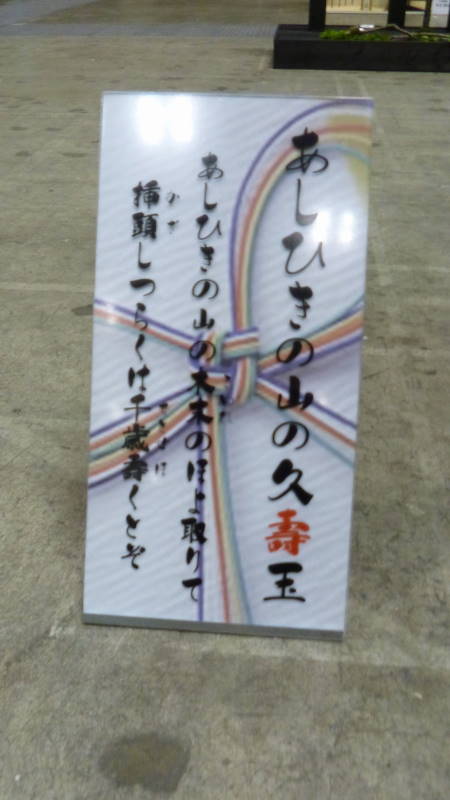 あしひきの山の久壽玉
あしひきの山の木末のほよ取りて
挿頭しつらくは千歳壽くとぞ
かざ